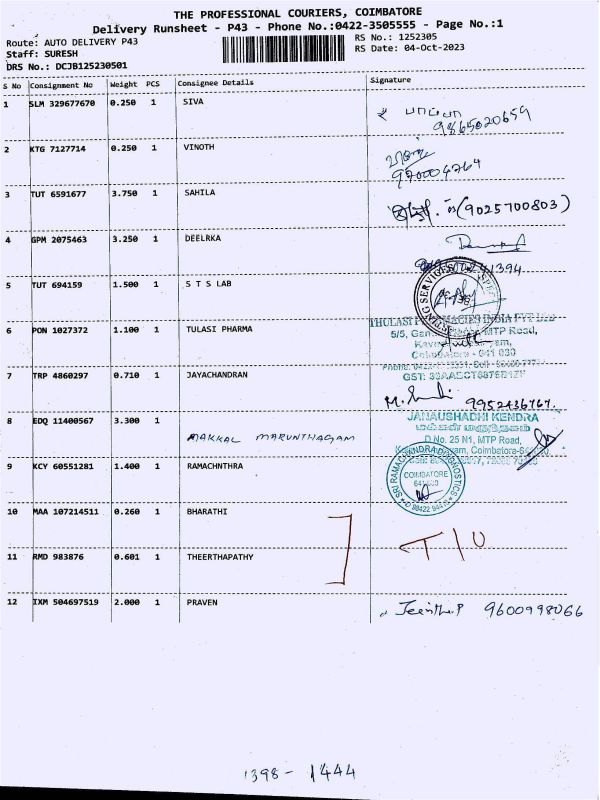 THE PROFESSIONAL COURIERS, COIMBATORE
Delivery Runsheet - P43 - Phone No.:0422-3505555 - Page No.:1
Route: AUTO DELIVERY P43 RS No.: 1252305
Staff: SURESH RS Date: 04-Oct-2023
DRS No.: DCJB125230501
S No Consignment No Weight PCS Consignee Details Signature
1 SLM 329677670 0.250 1 SIVA
9865020659
2 KTG 7127714 0.250 1 VINOTH
3 TUT 6591677 3.750 1 SAHILA (9025700803)
4 GPM 2075463 3.250 1 DEELRKA
5 TUT 694159 1.500 1 S T S LAB
6 PON 1027372 1.100 1 TULASI PHARMA
MTP Road,
7 TRP 4860297 0.710 1 JAYACHANDRAN
9952436767.
8 EDQ 11400567 3.300 1
MAKKAL MARUNTHAGAM
JANAUSHADHI KENDRA
மக்கள் மருந்தகம்
D.No. 25 N1, MTP Road,
9 KCY 60551281 1.400 1 RAMACHNTHRA
SRI RAMACHANDRA DIAGNOSTICS
COIMBATORE
10 MAA 107214511 0.260 1 BHARATHI
T/U
11 RMD 983876 0.601 1 THEERTHAPATHY
12 IXM 504697519 2.000 1 PRAVEN
9600998066
1398 - 1444